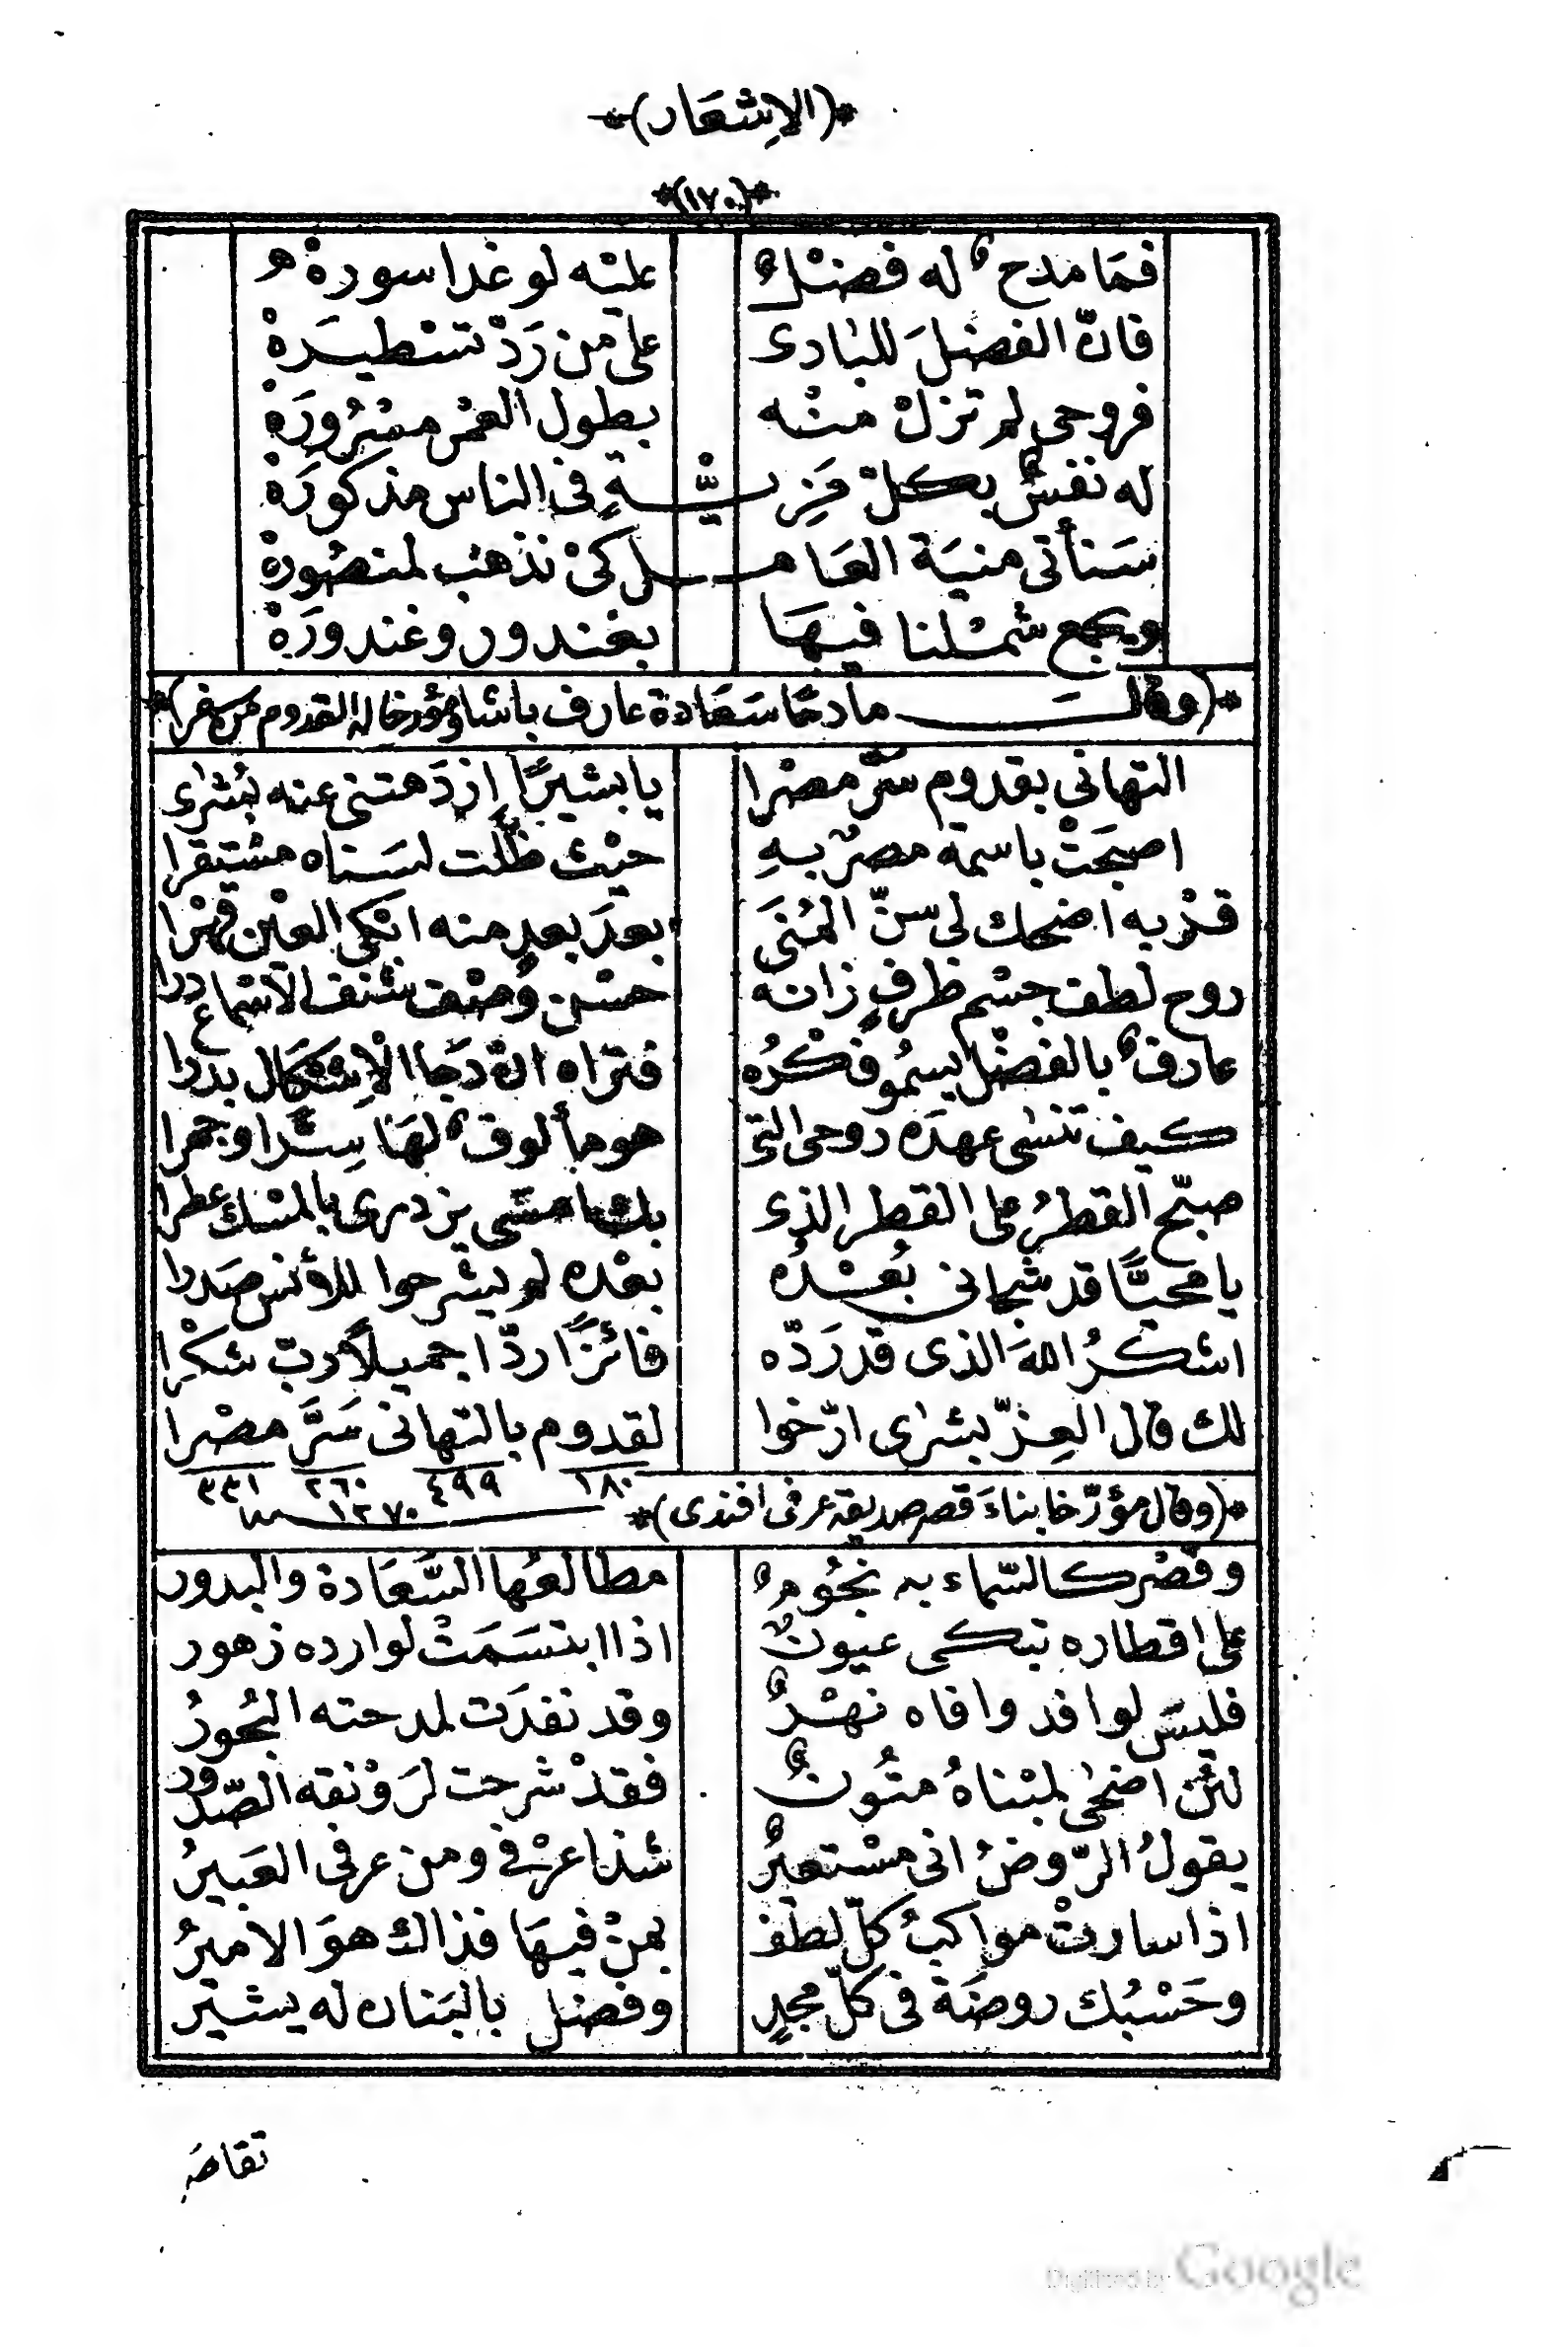 *(الاِشعَار)*
*(١٧٠)*
فمَا مدحٌ له فضْلٌ عليْه لو غدا سورةْ
فانّ الفضلَ للبادى على من رَدّ تسْطيرَهْ
فروحى لم تزلْ منْه بطول العمْر مسْرُورَهْ
له نفسٌ بكلّ مَزِيَّةٍ فى الناس مذكورَهْ
سَنأتى منيَة العَامل كىْ نذهبْ لمنصُورةْ
ويجمع شمْلنا فيهَا بغندور وغندورَهْ
*(وقالَ مادحًا سَعَادة عارف باشا ومؤرخا له القدوم من سفر)*
التهانى بقدوم سَرَّ مصْرا يا بشيرًا اِزدَهتنى عنه بُشْرى
اصبَحَتْ باسمة مصرٌ بهِ حيْث ظلّت لسَناه مستقرا
قدْ به اضحك لى سنّ المُنَى بعدَ بعدٍ منه ابْكى العيْن قهْرا
روح لطف جسْم ظرفٍ زانه حسْن وُصْف شنف الاسْماع درا
عارفٌ بالفضْل يسمُو فكْرُه فترَاه ان دَجَا الْاِشْكَال بدرا
كيف تنسْى عهدَه روحى التى هو مألوفٌ لهَا سِرًّا وجهرا
صبّح القطرُ على القطر الذى بك امسَى يزدرى بالمسْك عطرا
يا محيًّا قد شجانى بُعْدُه بعْده لم يشرحوا للأنس صَدرا
اشكرُ اللهَ الذى قد رَدّه فائزًا ردّا جميلاً ربّ شكْرا
لك قال العِزّ بشرٰى ارّخوا لقدوم بالتهانى سَرَّ مصْرا
١٨٠ ٤٩٩ ٢٦٠ ٣٣١
١٢٧٠ سنه
*(وقال مؤرّخا بناءَ قصر صديقه عرفى افندى)*
وقصْر كالسّماء به نجُومٌ مطالعُها السَّعَادة والبدور
على اقطاره تبكى عيونٌ اذا ابتسَمَتْ لوارده زهور
فليسَ لوافد وافاه نهْرٌ وقد نفدَت لمدحته البُحورُ
لئن اضحٰى لمبْناهُ متُونٌ فقدْ شرحت لرَوْنقه الصّدور
يقولُ الرّوضُ انى مسْتعيرٌ شذا عرْفى ومن عرفى العَبيرُ
اذا سارتْ مواكبُ كلّ لطْف بمنْ فيهَا فذاك هوَ الاميرُ
وحَسْبُك روضَة فى كلّ مجدٍ وفضل بالبَنان له يشير
Digitized by Google